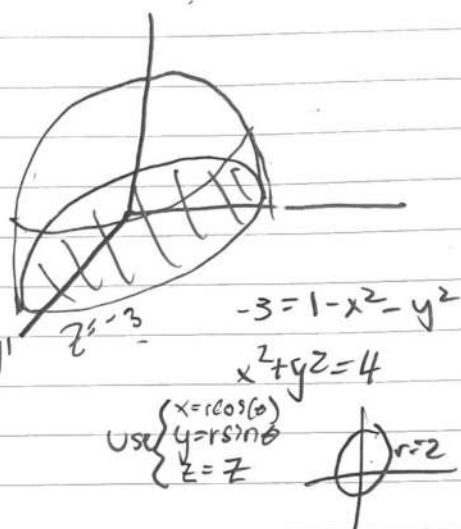 z=-3
-3=1-x²-y²
x²+y²=4
use { x=rcos(θ)
y=rsinθ
z=z
r=2